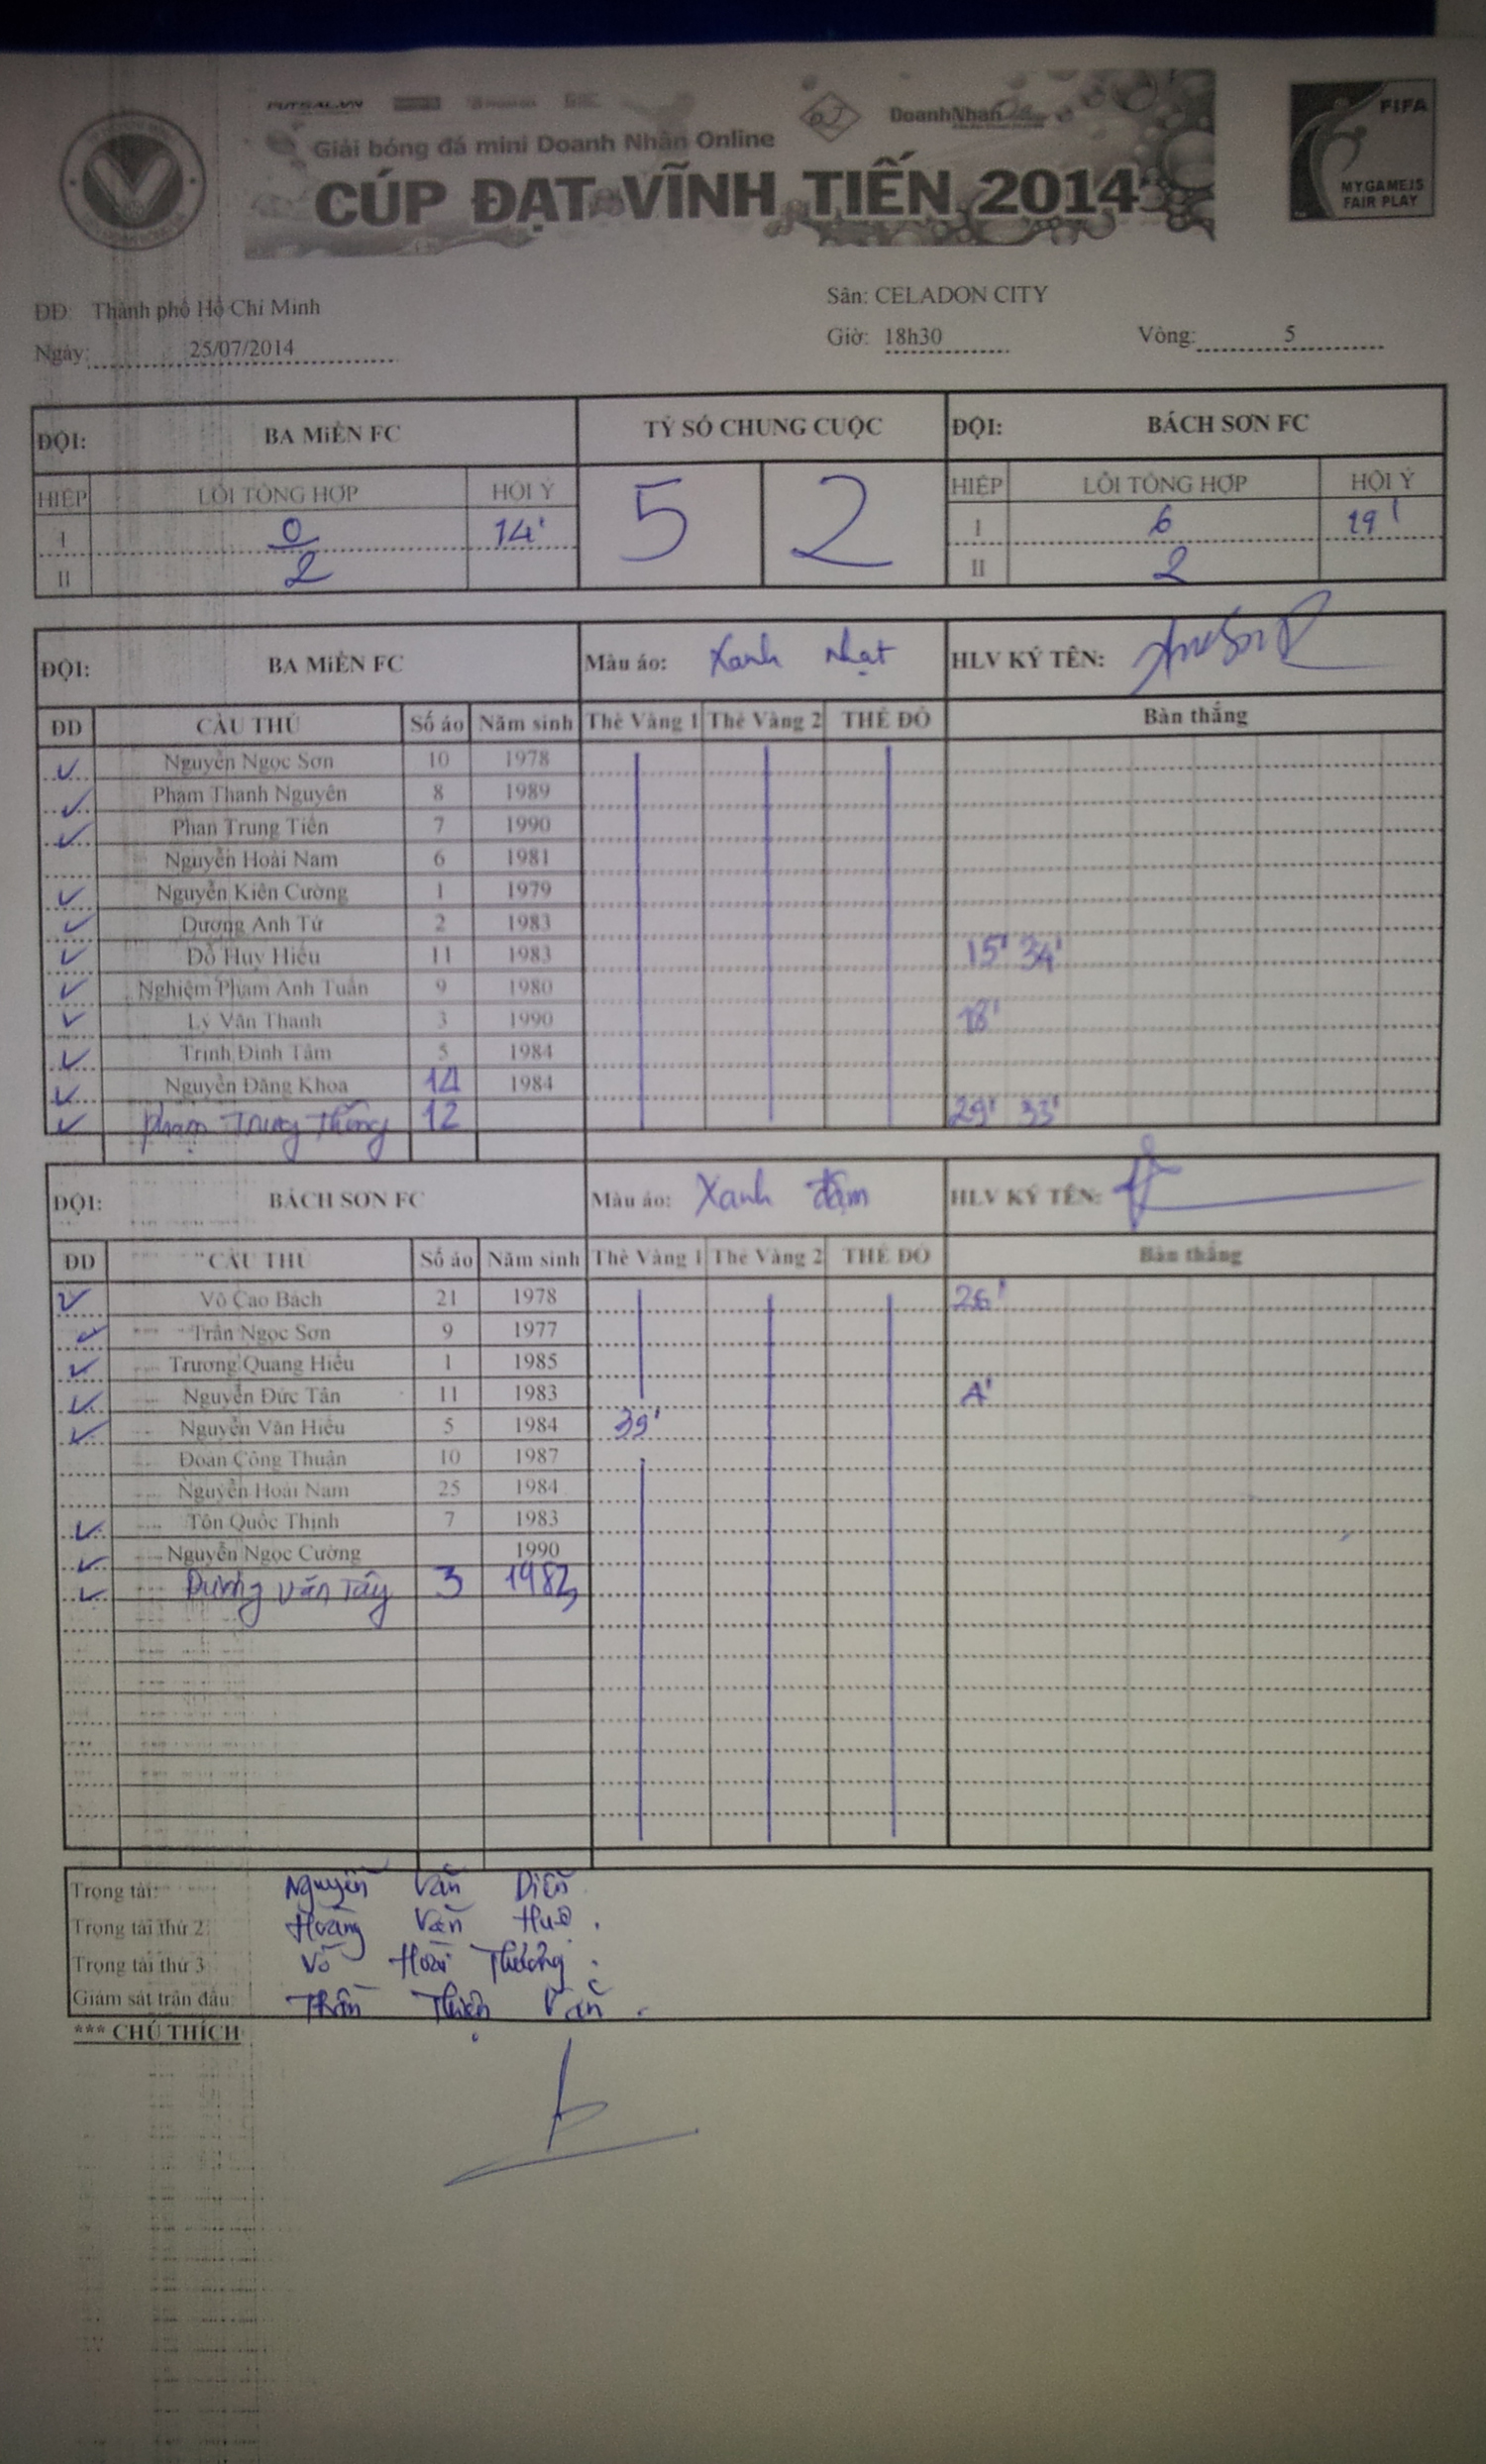 FUTSAL.VN
DoanhNhân
Giải bóng đá mini Doanh Nhân Online
CÚP ĐẠT VĨNH TIẾN 2014
FIFA
MYGAMEIS
FAIR PLAY
ĐĐ: Thành phố Hồ Chí Minh
Sân: CELADON CITY
Ngày: 25/07/2014
Giờ: 18h30
Vòng: 5
ĐỘI: BA MiỀN FC TỶ SỐ CHUNG CUỘC ĐỘI: BÁCH SƠN FC
HIỆP LỖI TỔNG HỢP HỘI Ý 5 2 HIỆP LỖI TỔNG HỢP HỘI Ý
I 0 14' I 6 19'
II 2 II 2
ĐỘI: BA MiỀN FC Màu áo: Xanh nhạt HLV KÝ TÊN:
ĐD CẦU THỦ Số áo Năm sinh Thẻ Vàng 1 Thẻ Vàng 2 THẺ ĐỎ Bàn thắng
Nguyễn Ngọc Sơn 10 1978
Phạm Thanh Nguyên 8 1989
Phan Trung Tiến 7 1990
Nguyễn Hoài Nam 6 1981
Nguyễn Kiên Cường 1 1979
Dương Anh Tứ 2 1983
Đỗ Huy Hiếu 11 1983 15' 34'
Nghiệm Phạm Anh Tuấn 9 1980
Lý Văn Thanh 3 1990 18'
Trịnh Đình Tâm 5 1984
Nguyễn Đăng Khoa 14 1984
Phạm Trung Thông 12 29' 33'
ĐỘI: BÁCH SƠN FC Màu áo: Xanh đậm HLV KÝ TÊN:
ĐD CẦU THỦ Số áo Năm sinh Thẻ Vàng 1 Thẻ Vàng 2 THẺ ĐỎ Bàn thắng
Võ Cao Bách 21 1978 26'
Trần Ngọc Sơn 9 1977
Trương Quang Hiếu 1 1985
Nguyễn Đức Tân 11 1983
Nguyễn Văn Hiếu 5 1984 39'
Đoàn Công Thuận 10 1987
Nguyễn Hoài Nam 25 1984
Tôn Quốc Thịnh 7 1983
Nguyễn Ngọc Cường 1990
Dương Văn Tây 3 1983
Trọng tài: Nguyễn Văn Diễn
Trọng tài thứ 2: Hoàng Văn Huê.
Trọng tài thứ 3: Võ Hoài Thương.
Giám sát trận đấu: Thân Thiện Văn.
*** CHÚ THÍCH